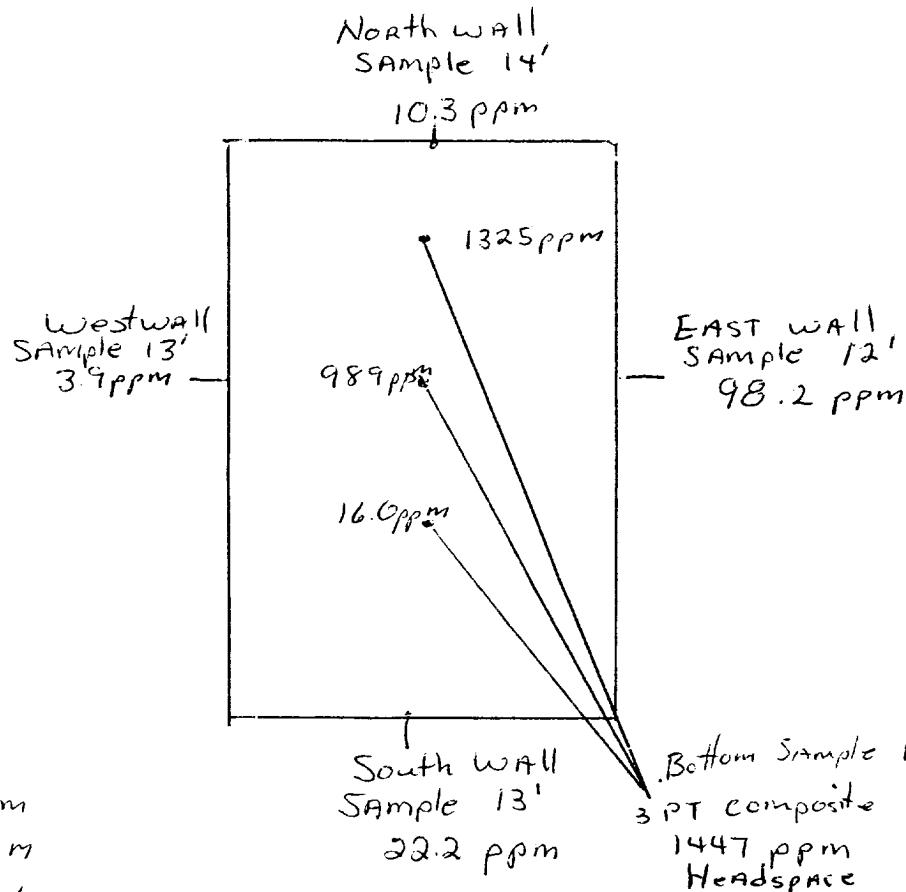 North wall
Sample 14'
10.3 ppm
1325 ppm
West wall
Sample 13'
3.9 ppm
989 ppm
East wall
Sample 12'
98.2 ppm
16.0 ppm
South wall
Sample 13'
22.2 ppm
Bottom Sample
3 PT composite
1447 ppm
Headspace
m
m